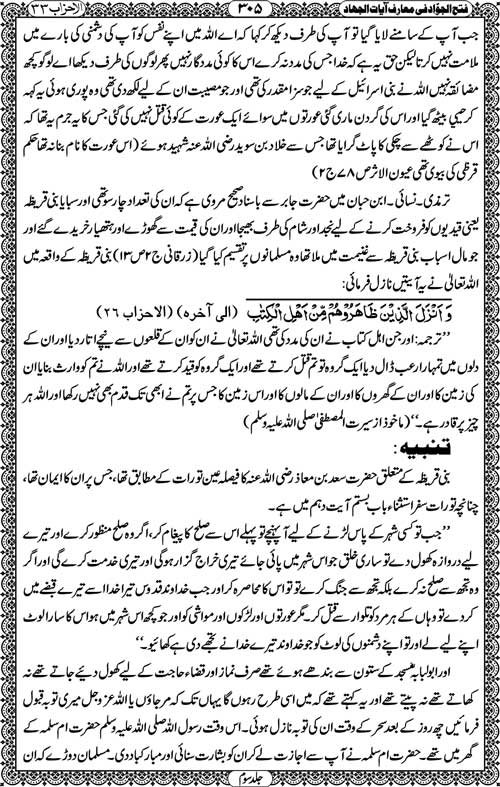 فتح الجوّاد فی معارف آیات الجہاد ۳۰۵ الاحزاب ۳۳
جب آپ کے سامنے لایا گیا تو آپ کی طرف دیکھ کر کہا کہ اے اللہ میں اپنے نفس کو آپ کی دشمنی کی بارے میں
ملامت نہیں کرتا لیکن حق یہ ہے کہ خدا جس کی مدد نہ کرے اس کا کوئی مددگار نہیں پھر لوگوں کی طرف دیکھا اے لوگو کچھ
مضائقہ نہیں اللہ نے بنی اسرائیل کے لیے جو سزا مقدر کی تھی اور جو مصیبت ان کے لیے لکھ دی تھی وہ پوری ہوئی یہ کہہ
کر حیی بیٹھ گیا اور اس کی گردن ماری گئی عورتوں میں سوائے ایک عورت کے کوئی قتل نہیں کی گئی جس کا یہ جرم یہ تھا کہ
اس نے کوٹھے سے چکی کا پاٹ گرایا تھا جس سے خلاد بن سوید رضی اللہ عنہ شہید ہوئے (اس عورت کا نام بنانہ تھا حکم
قرظی کی بیوی تھی عیون الاثر ص ۷۸ ج ۲)
ترمذی۔ نسائی۔ ابن حبان میں حضرت جابر سے باسناد صحیح مروی ہے کہ ان کی تعداد چار سو تھی اور سبایا بنی قریظہ
یعنی قیدیوں کو فروخت کرنے کے لیے نجد اور شام کی طرف بھیجا اور ان کی قیمت سے گھوڑے اور ہتھیار خریدے گئے اور
جو مال اسباب بنی قریظہ سے غنیمت میں ملا تھا وہ مسلمانوں پر تقسیم کیا گیا (زرقانی ج ۲ ص ۱۳) بنی قریظہ کے واقعہ میں
اللہ تعالیٰ نے یہ آیتیں نازل فرمائی:
وَ اَنْزَلَ الَّذِیْنَ ظَاھَرُوْھُمْ مِّنْ اَھْلِ الْکِتٰبِ (الی آخرہ) (الاحزاب ۲۶)
’’ترجمہ: اور جن اہل کتاب نے ان کی مدد کی تھی اللہ تعالیٰ نے ان کو ان کے قلعوں سے نیچے اتار دیا اور ان کے
دلوں میں تمہارا رعب ڈال دیا ایک گروہ کو تم قتل کرتے تھے اور ایک گروہ کو قید کرتے تھے اور اللہ نے تم کو وارث بنایا ان
کی زمین کا اور ان کے گھروں کا اور ان کے مالوں کا اور اس زمین کا جس پر تم نے ابھی تک قدم بھی نہیں رکھا اور اللہ ہر
چیز پر قادر ہے۔‘‘ (ماخوذ از سیرت المصطفیٰ صلی اللہ علیہ وسلم)
تنبیہ:
بنی قریظہ کے متعلق حضرت سعد بن معاذ رضی اللہ عنہ کا فیصلہ عین تورات کے مطابق تھا، جس پر ان کا ایمان تھا،
چنانچہ تورات سفر استثناء باب بستم آیت دہم میں ہے۔
’’جب تو کسی شہر کے پاس لڑنے کے لیے آ پہنچے تو پہلے اس سے صلح کا پیغام کر، اگر وہ صلح منظور کرے اور تیرے
لیے دروازہ کھول دے تو ساری خلق جو اس شہر میں پائی جائے تیری خراج گزار ہوگی اور تیری خدمت کرے گی اور اگر
وہ تجھ سے صلح نہ کرے بلکہ تجھ سے جنگ کرے تو تو اس کا محاصرہ کر اور جب خداوند قدوس تیرا خدا اسے تیرے قبضے میں
کردے تو وہاں کے ہر مرد کو تلوار سے قتل کر۔ مگر عورتوں اور لڑکوں اور مواشی کو اور جو کچھ اس شہر میں ہو اس کا سارا لوٹ
اپنے لیے لے اور تو اپنے دشمنوں کی لوٹ کو جو خداوند تیرے خدا نے تجھے دی ہے کھائیو۔‘‘
اور ابولبابہ مسجد کے ستون سے بندھے ہوئے تھے صرف نماز اور قضاء حاجت کے لیے کھول دیئے جاتے تھے نہ
کھاتے تھے نہ پیتے تھے اور یہ کہتے تھے کہ میں اسی طرح رہوں گا یہاں تک کہ مر جاؤں یا اللہ عزوجل میری توبہ قبول
فرمائیں چھ روز کے بعد سحر کے وقت ان کی توبہ نازل ہوئی۔ اس وقت رسول اللہ صلی اللہ علیہ وسلم حضرت ام سلمہ کے
گھر میں تھے۔ حضرت ام سلمہ نے آپ سے اجازت لے کر ان کو بشارت سنائی اور مبارکباد دی۔ مسلمان دوڑے کہ ان
جلد سوم